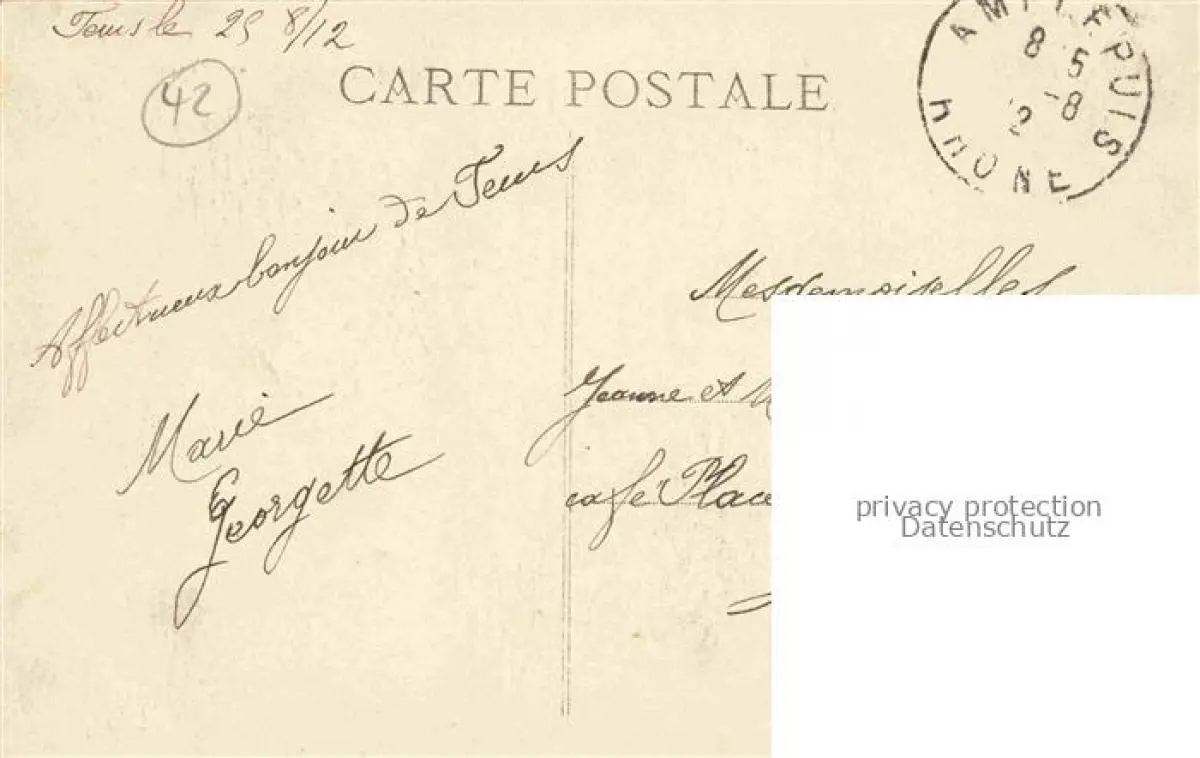 le 25 8/12
42
CARTE POSTALE
AMPUIS
RHONE
8
5-8
12
Affectueux bonjour de
Marie
Georgette
Mesdemoiselles
Jeanne et
café Place
privacy protection
Datenschutz